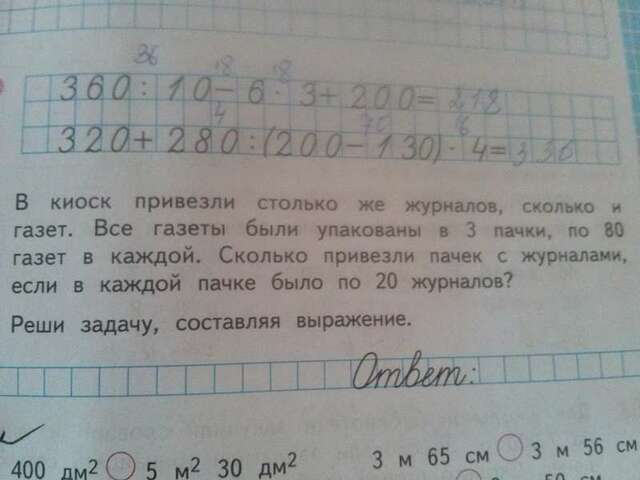 36 18 18
360 : 10 – 6 · 3 + 200 = 218
4 70
320 + 280 : (200 – 130) · 4 = 336
В киоск привезли столько же журналов, сколько и
газет. Все газеты были упакованы в 3 пачки, по 80
газет в каждой. Сколько привезли пачек с журналами,
если в каждой пачке было по 20 журналов?
Реши задачу, составляя выражение.
Ответ:
400 дм² 5 м² 30 дм² 3 м 65 см 3 м 56 см
50 см